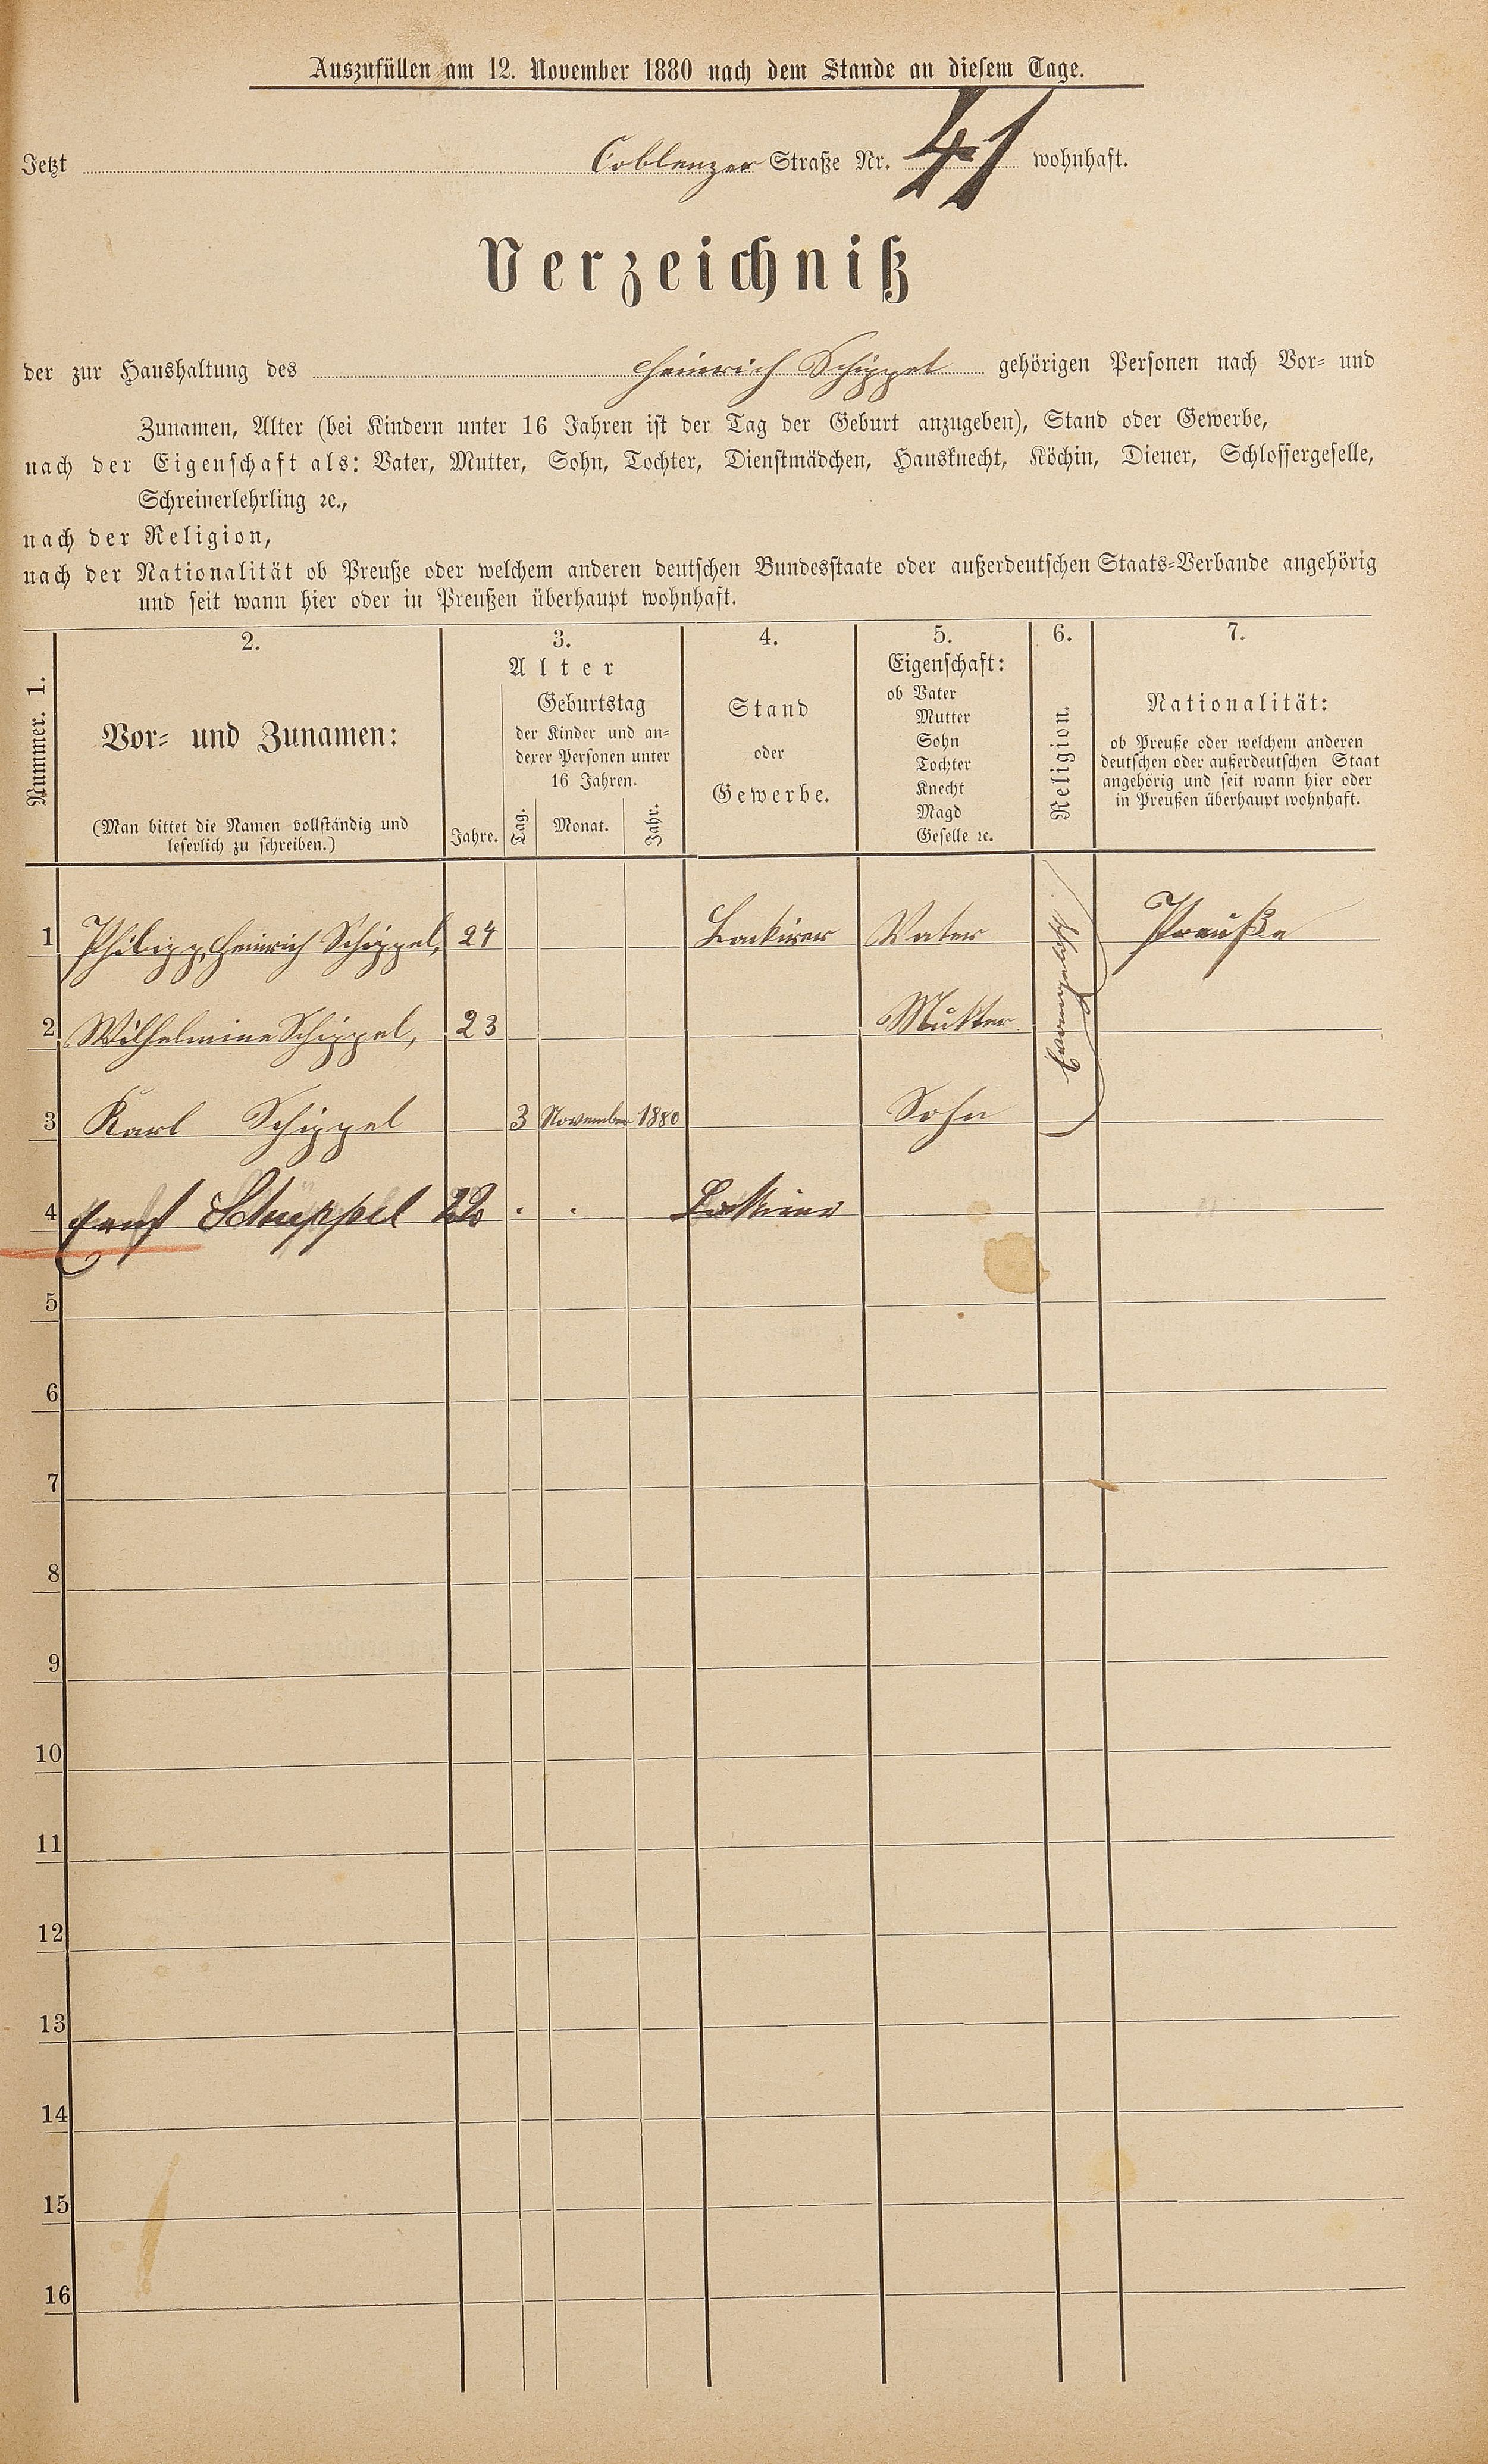 Auszufüllen am 12. November 1880 nach dem Stande an diesem Tage.
Jetzt Coblenzer Straße Nr. 41 wohnhaft.
Verzeichniß
der zur Haushaltung des Heinrich Schippel gehörigen Personen nach Vor- und
Zunamen, Alter (bei Kindern unter 16 Jahren ist der Tag der Geburt anzugeben), Stand oder Gewerbe,
nach der Eigenschaft als: Vater, Mutter, Sohn, Tochter, Dienstmädchen, Hausknecht, Köchin, Diener, Schlossergeselle,
Schreinerlehrling ꝛc.,
nach der Religion,
nach der Nationalität ob Preuße oder welchem anderen deutschen Bundesstaate oder außerdeutschen Staats-Verbande angehörig
und seit wann hier oder in Preußen überhaupt wohnhaft.
Nummer. 1.
2.
Vor- und Zunamen:
(Man bittet die Namen vollständig und
leserlich zu schreiben.)
3.
Alter
Jahre.
Geburtstag
der Kinder und an-
derer Personen unter
16 Jahren.
Tag.
Monat.
Jahr.
4.
Stand
oder
Gewerbe.
5.
Eigenschaft:
ob Vater
Mutter
Sohn
Tochter
Knecht
Magd
Geselle ꝛc.
6.
Religion.
7.
Nationalität:
ob Preuße oder welchem anderen
deutschen oder außerdeutschen Staat
angehörig und seit wann hier oder
in Preußen überhaupt wohnhaft.
1 Philipp, Heinrich Schippel, 24 Lackirer Vater Evangelisch Preuße
2 Wilhelmine Schippel, 23 Mutter
3 Karl Schippel 3 November 1880 Sohn
4 Ernst Schüppel 22 Lakirer
5
6
7
8
9
10
11
12
13
14
15
16